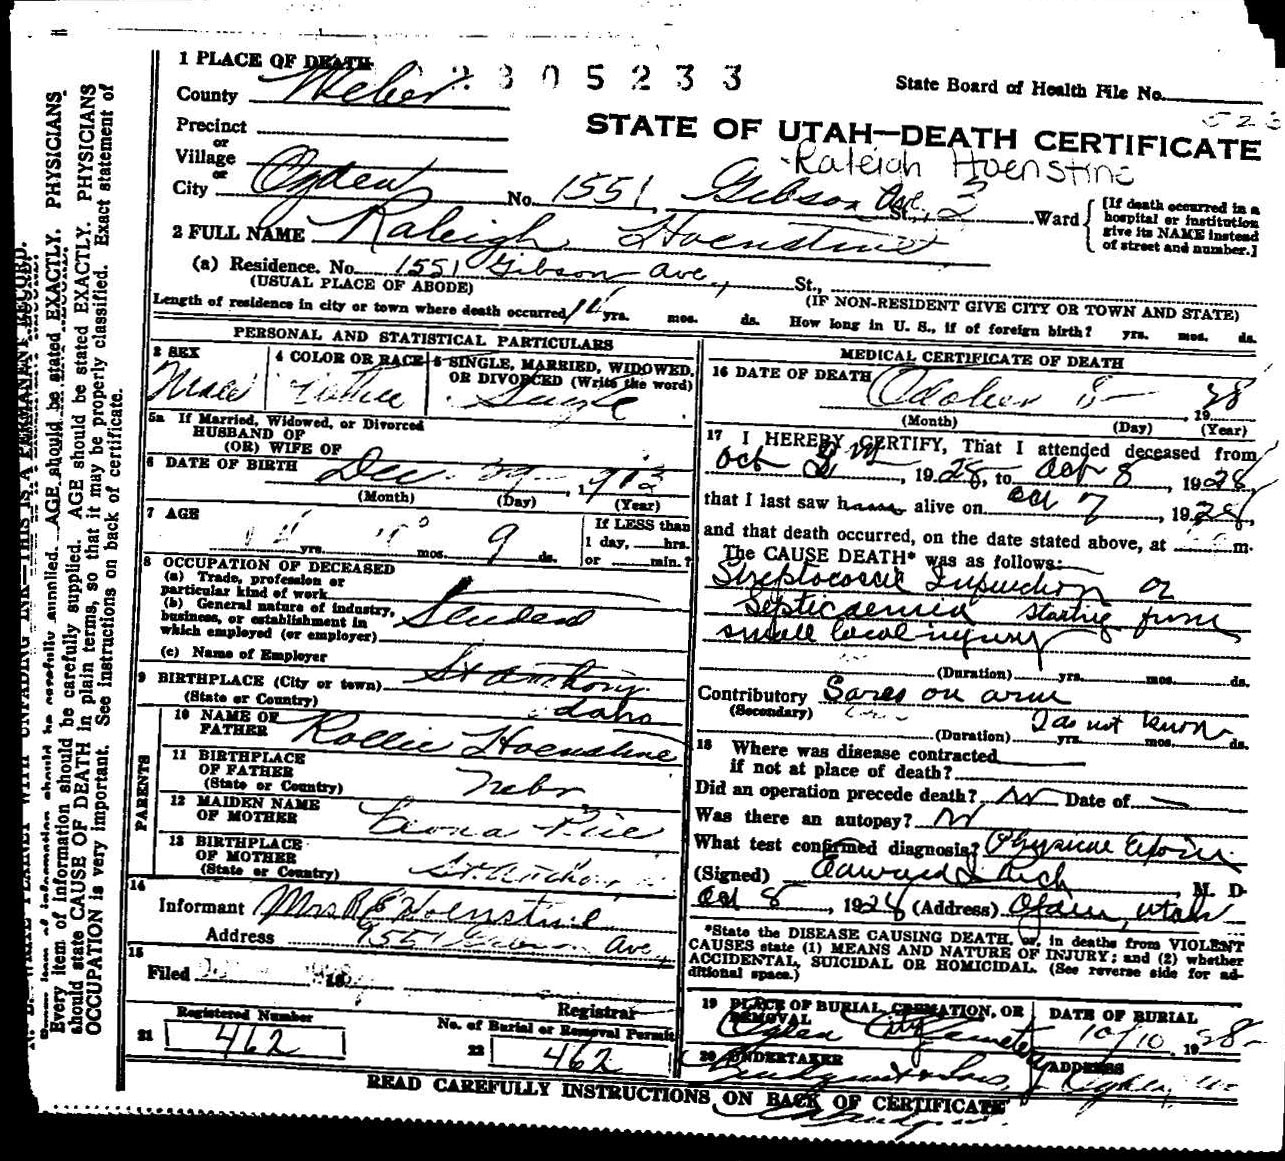 1 PLACE OF DEATH
2305233
State Board of Health File No.
County Weber
523
STATE OF UTAH—DEATH CERTIFICATE
Precinct
or
Village
or
Raleigh Hoenstine
City Ogden No. 1551 Gibson Ave. St., 3 Ward
[If death occurred in a hospital or institution give its NAME instead of street and number.]
2 FULL NAME Raleigh Hoenstine
(a) Residence. No. 1551 Gibson Ave, St.,
(USUAL PLACE OF ABODE)
(IF NON-RESIDENT GIVE CITY OR TOWN AND STATE)
Length of residence in city or town where death occurred yrs. mos. ds. How long in U. S., if of foreign birth? yrs. mos. ds.
PERSONAL AND STATISTICAL PARTICULARS
3 SEX
Male
4 COLOR OR RACE
White
5 SINGLE, MARRIED, WIDOWED, OR DIVORCED (Write the word)
Single
5a If Married, Widowed, or Divorced
HUSBAND OF
(OR) WIFE OF
6 DATE OF BIRTH Dec. 29 1913
(Month) (Day) (Year)
7 AGE
yrs. mos. 9 ds.
If LESS than
1 day, hrs.
or min.?
8 OCCUPATION OF DECEASED
(a) Trade, profession or
particular kind of work
(b) General nature of industry,
business, or establishment in
which employed (or employer) Student
(c) Name of Employer
9 BIRTHPLACE (City or town) St Anthony
(State or Country) Idaho
PARENTS
10 NAME OF
FATHER Rollie Hoenstine
11 BIRTHPLACE
OF FATHER
(State or Country) Nebr
12 MAIDEN NAME
OF MOTHER Leona
13 BIRTHPLACE
OF MOTHER
(State or Country) St Anthony
14
Informant Mrs R E Hoenstine
Address 1551 Gibson Ave,
15
Filed
Registrar
Registered Number
21 462
No. of Burial or Removal Permit
22 462
MEDICAL CERTIFICATE OF DEATH
16 DATE OF DEATH October 8 1928
(Month) (Day) (Year)
17 I HEREBY CERTIFY, That I attended deceased from
Oct , 1928, to Oct 8, 1928,
that I last saw him alive on Oct 7, 1928,
and that death occurred, on the date stated above, at m.
The CAUSE DEATH* was as follows:
Streptococcic Infection or
Septicaemia starting from
small local injury
(Duration) yrs. mos. ds.
Contributory Sores on arm
(Secondary) I do not know
(Duration) yrs. mos. ds.
18 Where was disease contracted
if not at place of death?
Did an operation precede death? No Date of
Was there an autopsy? No
What test confirmed diagnosis? Physical Exam
(Signed) Edward I Rich, M. D.
Oct 8, 1928 (Address) Ogden, Utah
*State the DISEASE CAUSING DEATH, or, in deaths from VIOLENT
CAUSES state (1) MEANS AND NATURE OF INJURY; and (2) whether
ACCIDENTAL, SUICIDAL OR HOMICIDAL. (See reverse side for additional space.)
19 PLACE OF BURIAL, CREMATION, OR REMOVAL
Ogden City Cemetery
DATE OF BURIAL
10/10, 1928
20 UNDERTAKER
Lindquist & Sons,
ADDRESS
Ogden, Ut
READ CAREFULLY INSTRUCTIONS ON BACK OF CERTIFICATE
N. B. WRITE PLAINLY WITH UNFADING INK—THIS IS A PERMANENT RECORD.
Every item of information should be carefully supplied. AGE should be stated EXACTLY. PHYSICIANS
should state CAUSE OF DEATH in plain terms, so that it may be properly classified. Exact statement of
OCCUPATION is very important. See instructions on back of certificate.